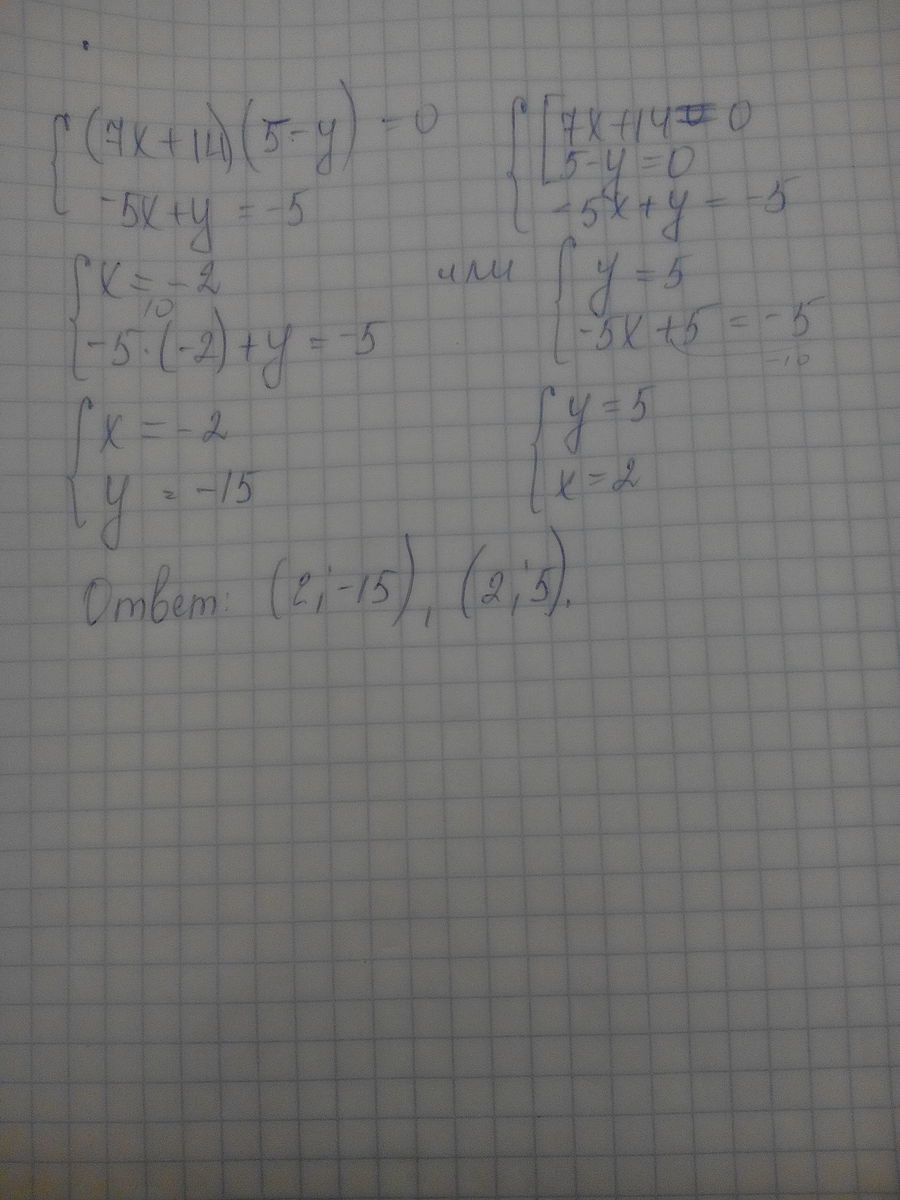 (7x+14)(5-y) = 0
-5x+y = -5
7x+14=0
5-y=0
-5x+y = -5
x = -2
10
-5·(-2)+y = -5
или
y = 5
-5x+5 = -5
-10
x = -2
y = -15
y = 5
x = 2
Ответ: (2; -15), (2; 5).